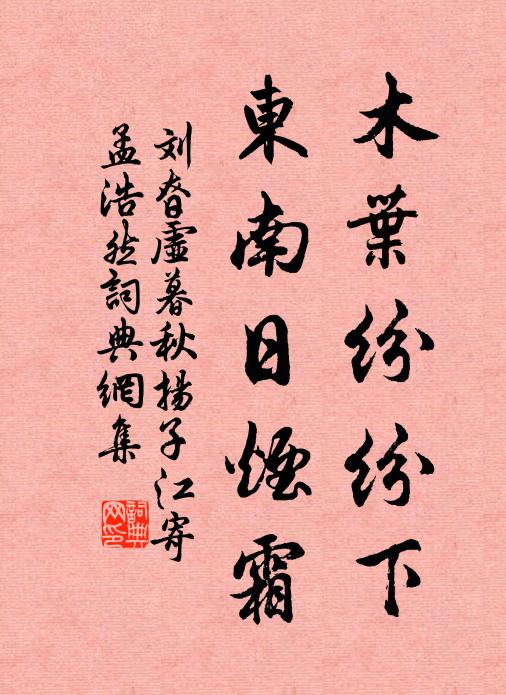 木葉紛紛下
東南日煙霜
刘眘虛暮秋揚子江寄
孟浩然詞典網集
詞典网印